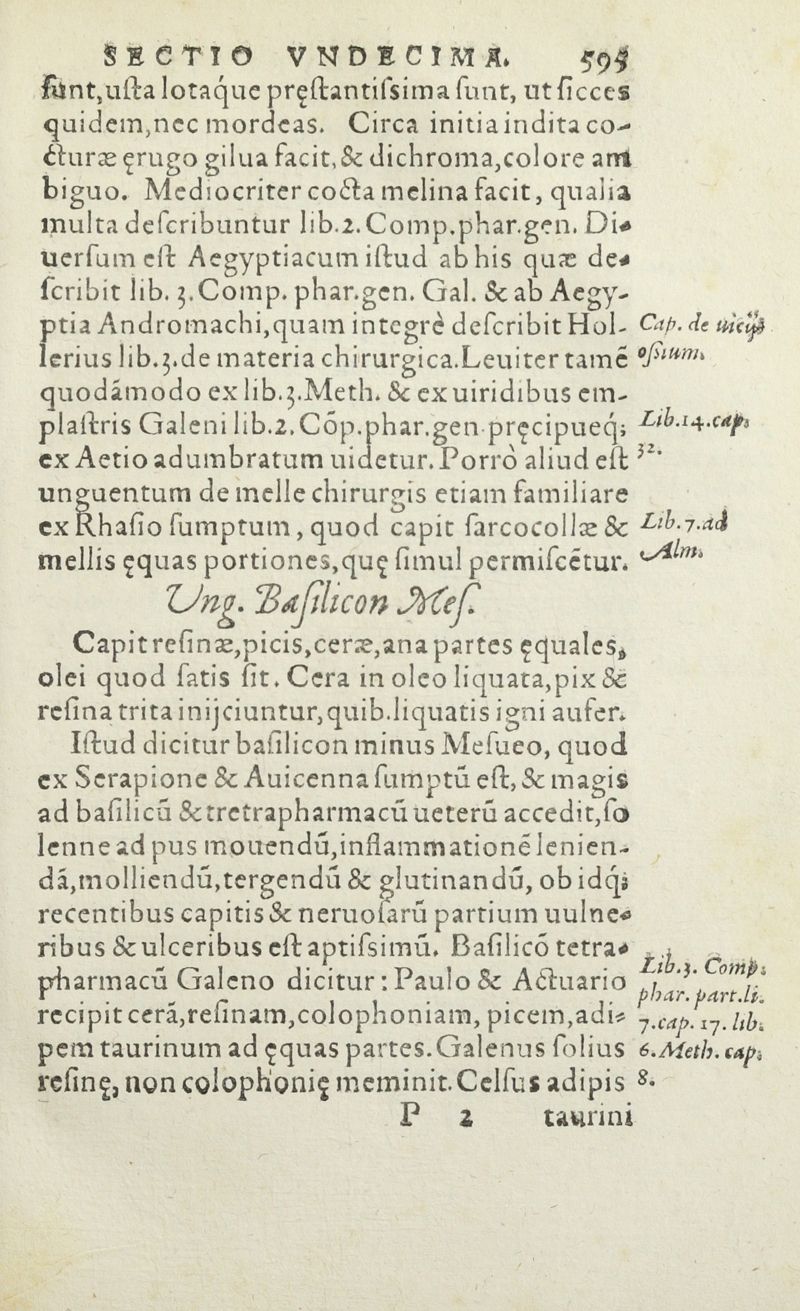 SECTIO VNDECIMA.
ſunt, uſta lotaq́ue pręſtantiſsima ſunt, ut ſicces
quidem, nec mordeas. Circa initia indita co-
cturæ ęrugo gilua facit, & dichroma, colore am
biguo. Mediocriter cocta melina facit, qualia
multa deſcribuntur lib.2. Comp.phar.gen. Di-
uerſum eſt Aegyptiacum iſtud ab his quæ de-
ſcribit lib. 3. Comp. phar.gen. Gal. & ab Aegy-
ptia Andromachi, quam integrè deſcribit Hol-
Cap. de
oſsium.
lerius lib.3.de materia chirurgica. Leuiter tamē
quodámodo ex lib.3. Meth. & ex uiridibus em-
plaſtris Galeni lib.2. Cōp.phar.gen. pręcipueq́;
Lib.14.cap.
32.
ex Aetio adumbratum uidetur. Porrò aliud eſt
unguentum de melle chirurgis etiam familiare
ex Rhaſio ſumptum, quod capit ſarcocollæ &
Lib.7.ad
Alm.
mellis ęquas portiones, quę ſimul permiſcētur.
Ung. Baſilicon Meſ.
Capit reſinæ, picis, ceræ, ana partes ęquales,
olei quod ſatis ſit. Cera in oleo liquata, pix &
reſina trita inijciuntur, quib. liquatis igni aufer.
Iſtud dicitur baſilicon minus Meſueo, quod
ex Serapione & Auicenna ſumptū eſt, & magis
ad baſilicū & tretrapharmacū ueterū accedit, ſo
lenne ad pus mouendū, inflammationē lenien-
dā, molliendū, tergendū & glutinandū, ob idq́;
recentibus capitis & neruoſarū partium uulne-
ribus & ulceribus eſt aptiſsimū. Baſilicō tetra-
pharmacū Galeno dicitur: Paulo & Actuario
Lib.3. Comp.
phar. part.li.
7.cap. 17. lib.
6.Meth. cap.
8.
recipit cerā, reſinam, colophoniam, picem, adi-
pem taurinum ad ęquas partes. Galenus ſolius
reſinę, non colophonię meminit. Celſus adipis
P 2 taurini